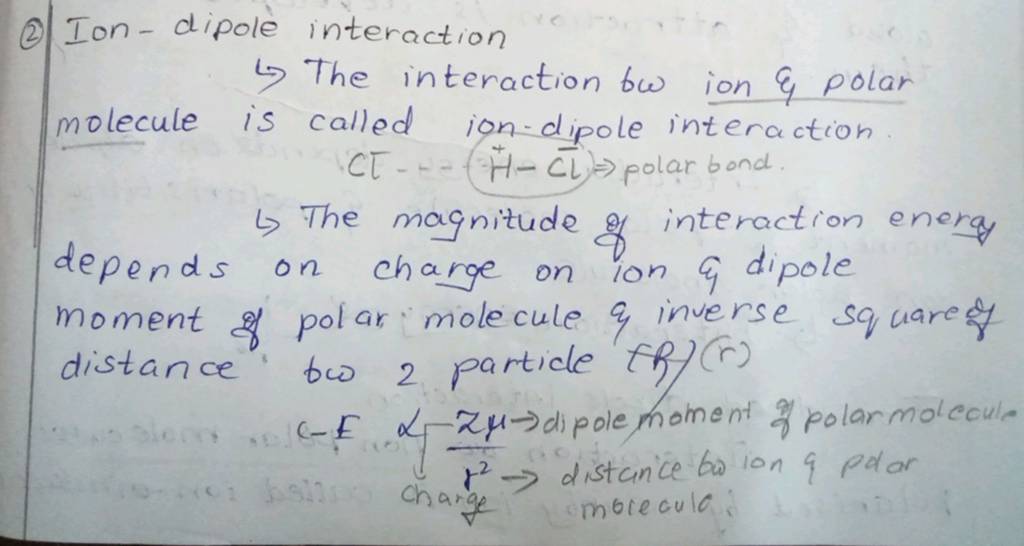 ② Ion - dipole interaction
↳ The interaction bw ion & polar
molecule is called ion-dipole interaction.
Cl⁻ ---- H⁺ - Cl⁻ ⇒ polar bond.
↳ The magnitude of interaction energy
depends on charge on ion & dipole
moment of polar molecule & inverse square of
distance bw 2 particle (R) (r)
-E α -Zμ → dipole moment of polar molecule
r² → distance bw ion & polar
charge molecule